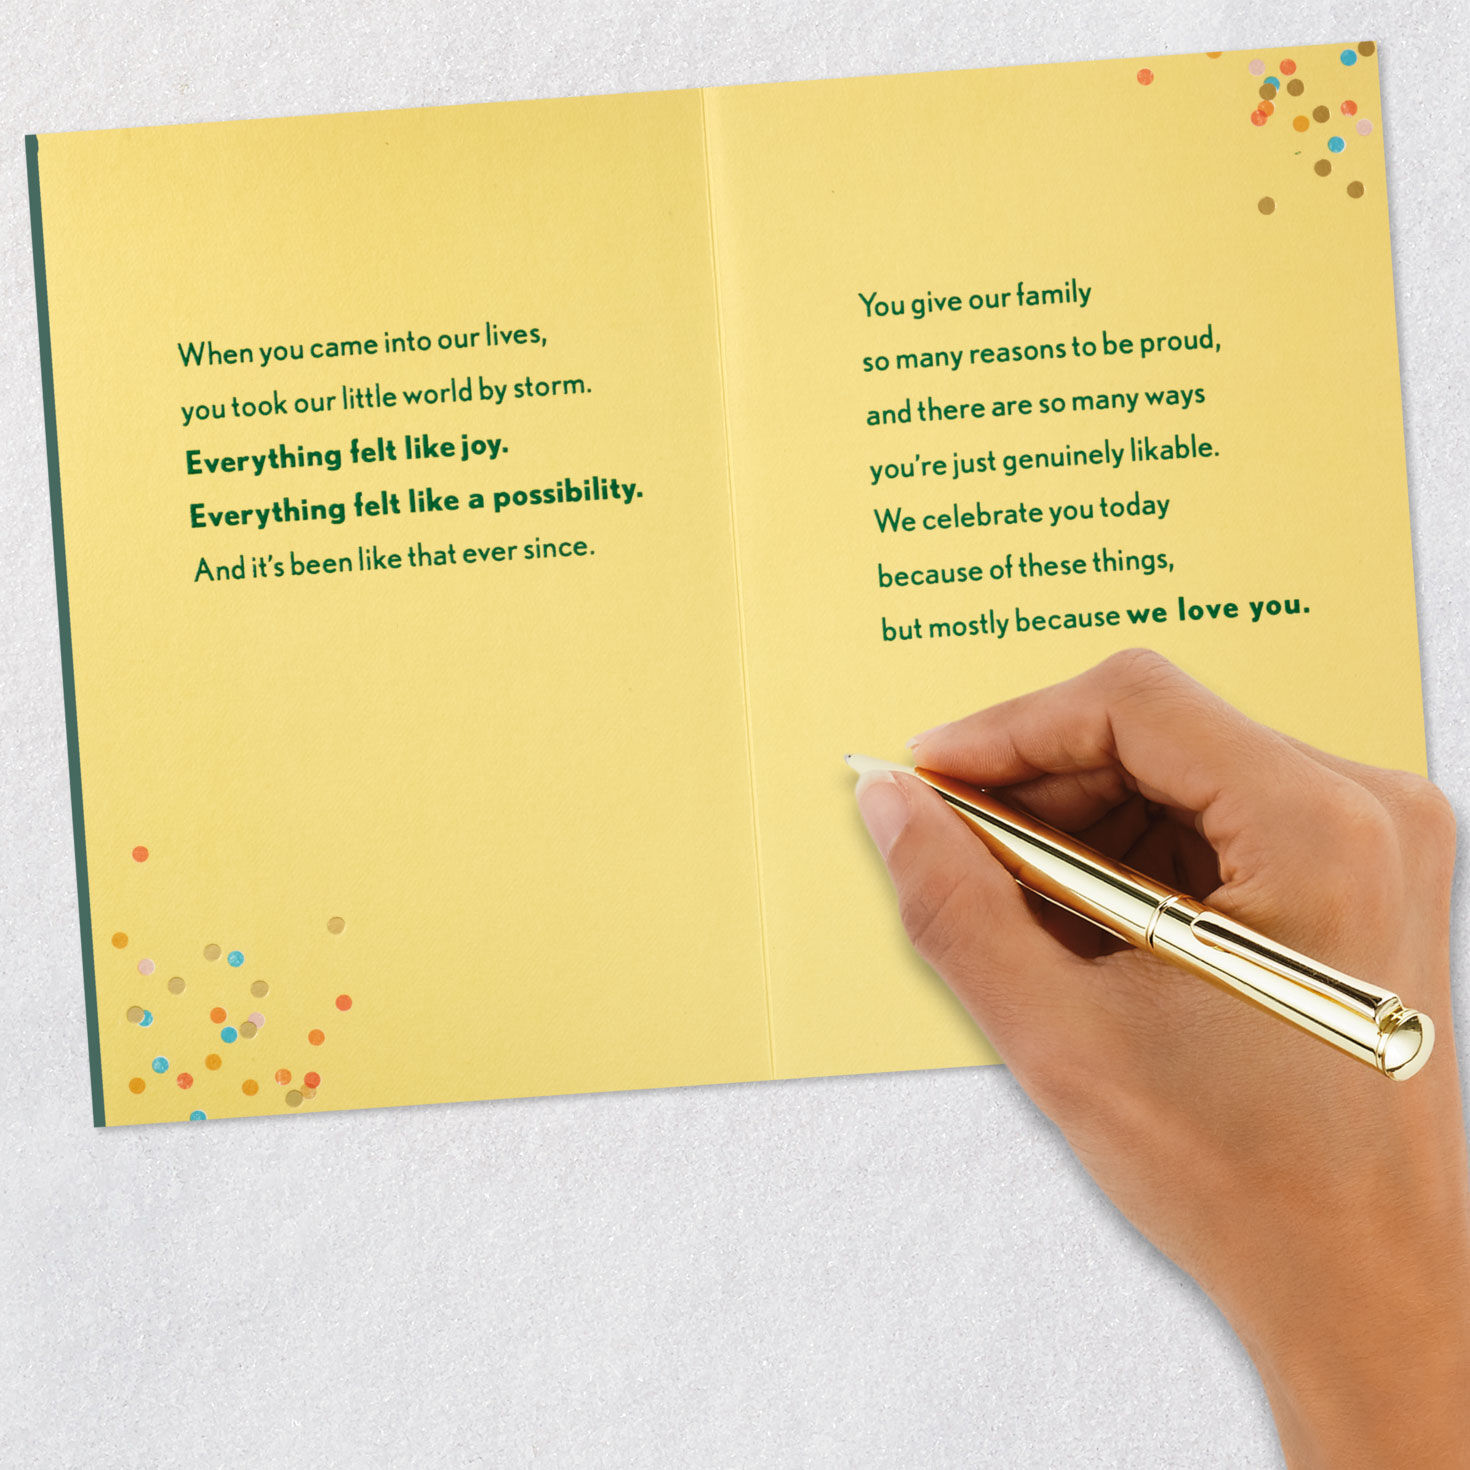 When you came into our lives,
you took our little world by storm.
Everything felt like joy.
Everything felt like a possibility.
And it's been like that ever since.
You give our family
so many reasons to be proud,
and there are so many ways
you're just genuinely likable.
We celebrate you today
because of these things,
but mostly because we love you.